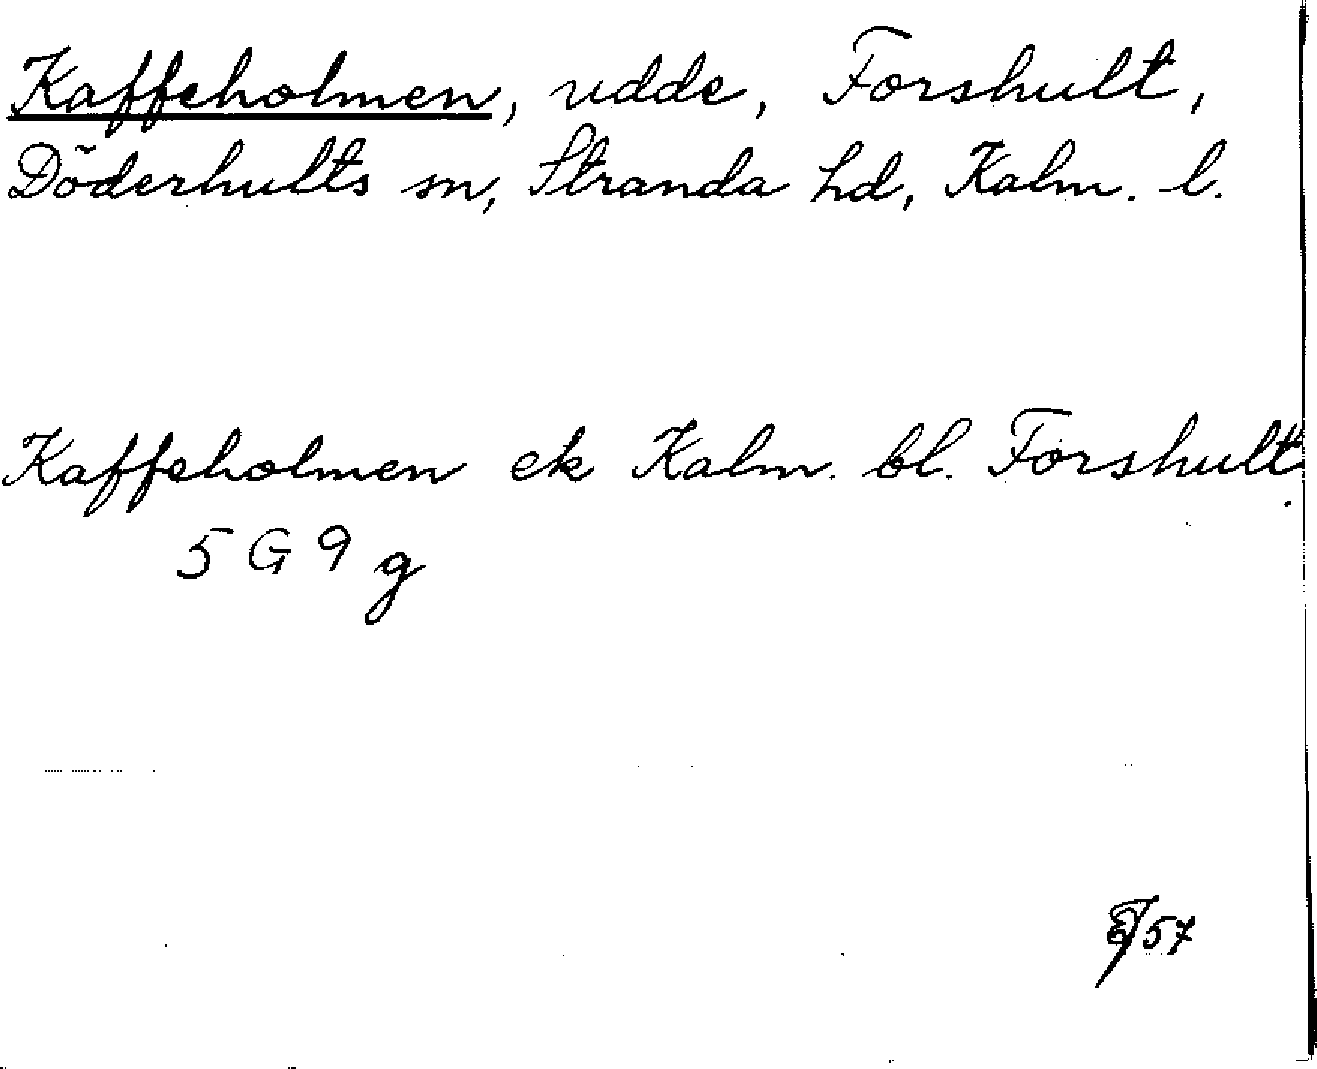 Kaffeholmen, udde, Forshult,
Döderhults sn, Stranda hd, Kalm. l.
Kaffeholmen ek Kalm. bl. Forshult.
5 G 9 g
57